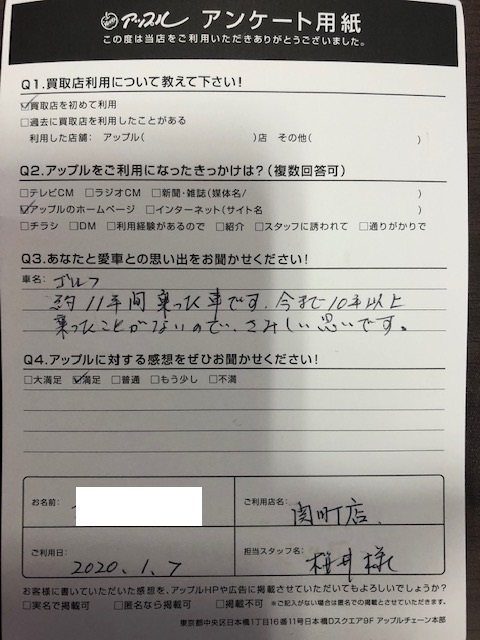 アップル アンケート用紙
この度は当店をご利用いただきありがとうございました。
Q1.買取店利用について教えて下さい!
☑買取店を初めて利用
□過去に買取店を利用したことがある
利用した店舗: アップル( )店 その他( )
Q2.アップルをご利用になったきっかけは?(複数回答可)
□テレビCM □ラジオCM □新聞・雑誌(媒体名/ )
☑アップルのホームページ □インターネット(サイト名 )
□チラシ □DM □利用経験があるので □紹介 □スタッフに誘われて □通りがかりで
Q3.あなたと愛車との思い出をお聞かせください!
車名: ゴルフ
約11年間乗った車です、今まで10年以上
乗ったことがないので、さみしい思いです。
Q4.アップルに対する感想をぜひお聞かせください!
□大満足 ☑満足 □普通 □もう少し □不満
お名前:
ご利用店名: 関町店
ご利用日: 2020.1.7
担当スタッフ名: 桜井様
お客様に書いていただいた感想を、アップルHPや広告に掲載させていただいてもよろしいでしょうか?
□実名で掲載可 □匿名なら掲載可 □掲載不可 ※ご記入がない場合は匿名での掲載とさせていただきます。
東京都中央区日本橋1丁目16番11号日本橋Dスクエア9F アップルチェーン本部